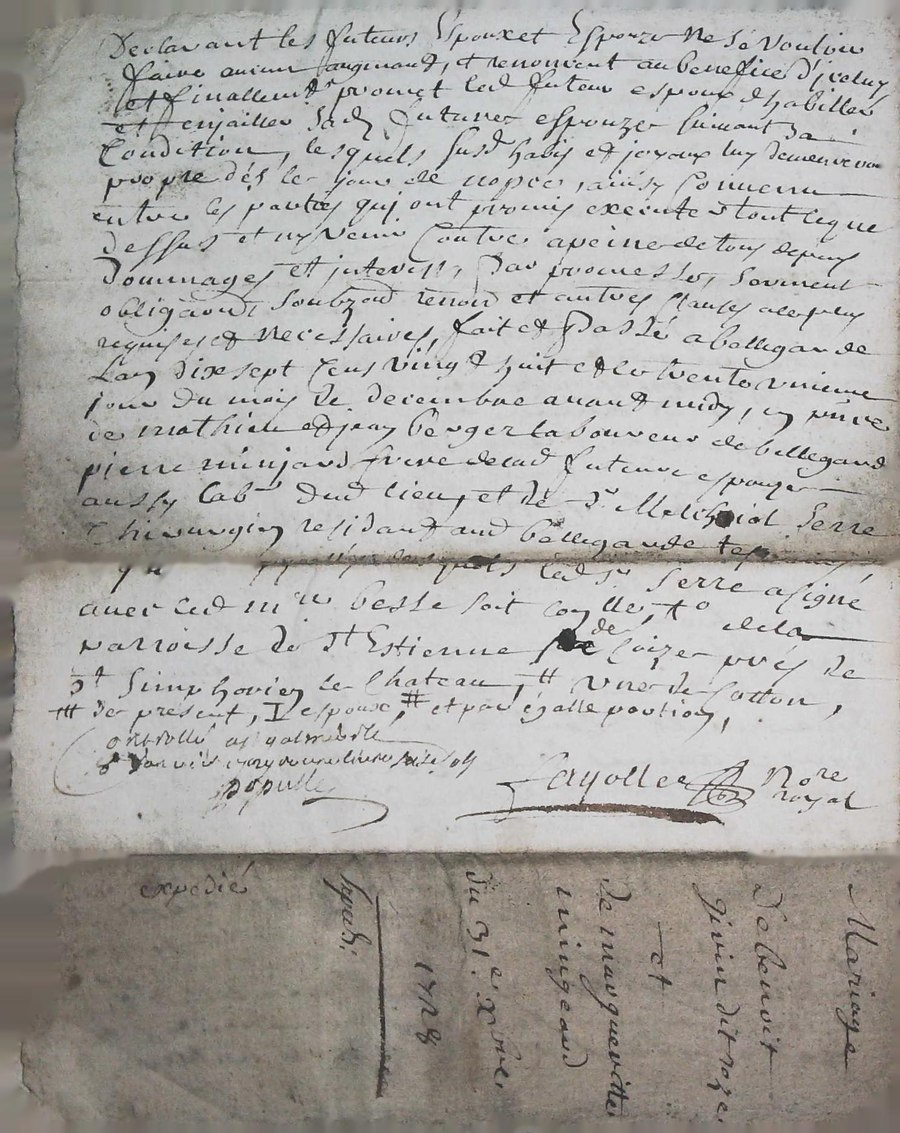 Declarant les futeurs Espoux et Espouze ne se vouloir
faire aucun augmand, et renoncent au benefice d'iceluy
et finallem.t promet led futeur espoux d'habiller
et enjailler sad. future espouze suivant sa
Condition, lesquels susd habis et joyaux luy demeureron
propre dés le jour de nopce, ainsy Convenu
entre les parties qui ont promis executer tout ce que
dessus et ny venir Contre apeine de tous depens
Dommages et interests, Par promesses, serment
obligaon, soubzon renon et autres clauses
requises et necessaires, fait et Passé a bellegarde
Lan dix sept Cens vingt huit et le trente unieme
jour du mois de decembre avant midy, en pnce
de mathieu et jean berger laboureur de bellegard
pierre minjard frere de lad future espouze
aussy lab.r dud lieu, et de s.r Melchiol Serre
Chirurgien residant aud bellegarde
led s.r Serre a signé
avec led besse soit de la
parroisse de S.t Estienne de Coize prés de
S.t Simphorien le Chateau, # une de Cotton,
# de present, I espoux, # et par égalle portion,
Controllé a
populle
Fayolle No.re
royal
Mariage
De benoit
givin dit roze
et
de margueritte
mingeard
du 31.e Xbre
1728
Expedi.
expedié